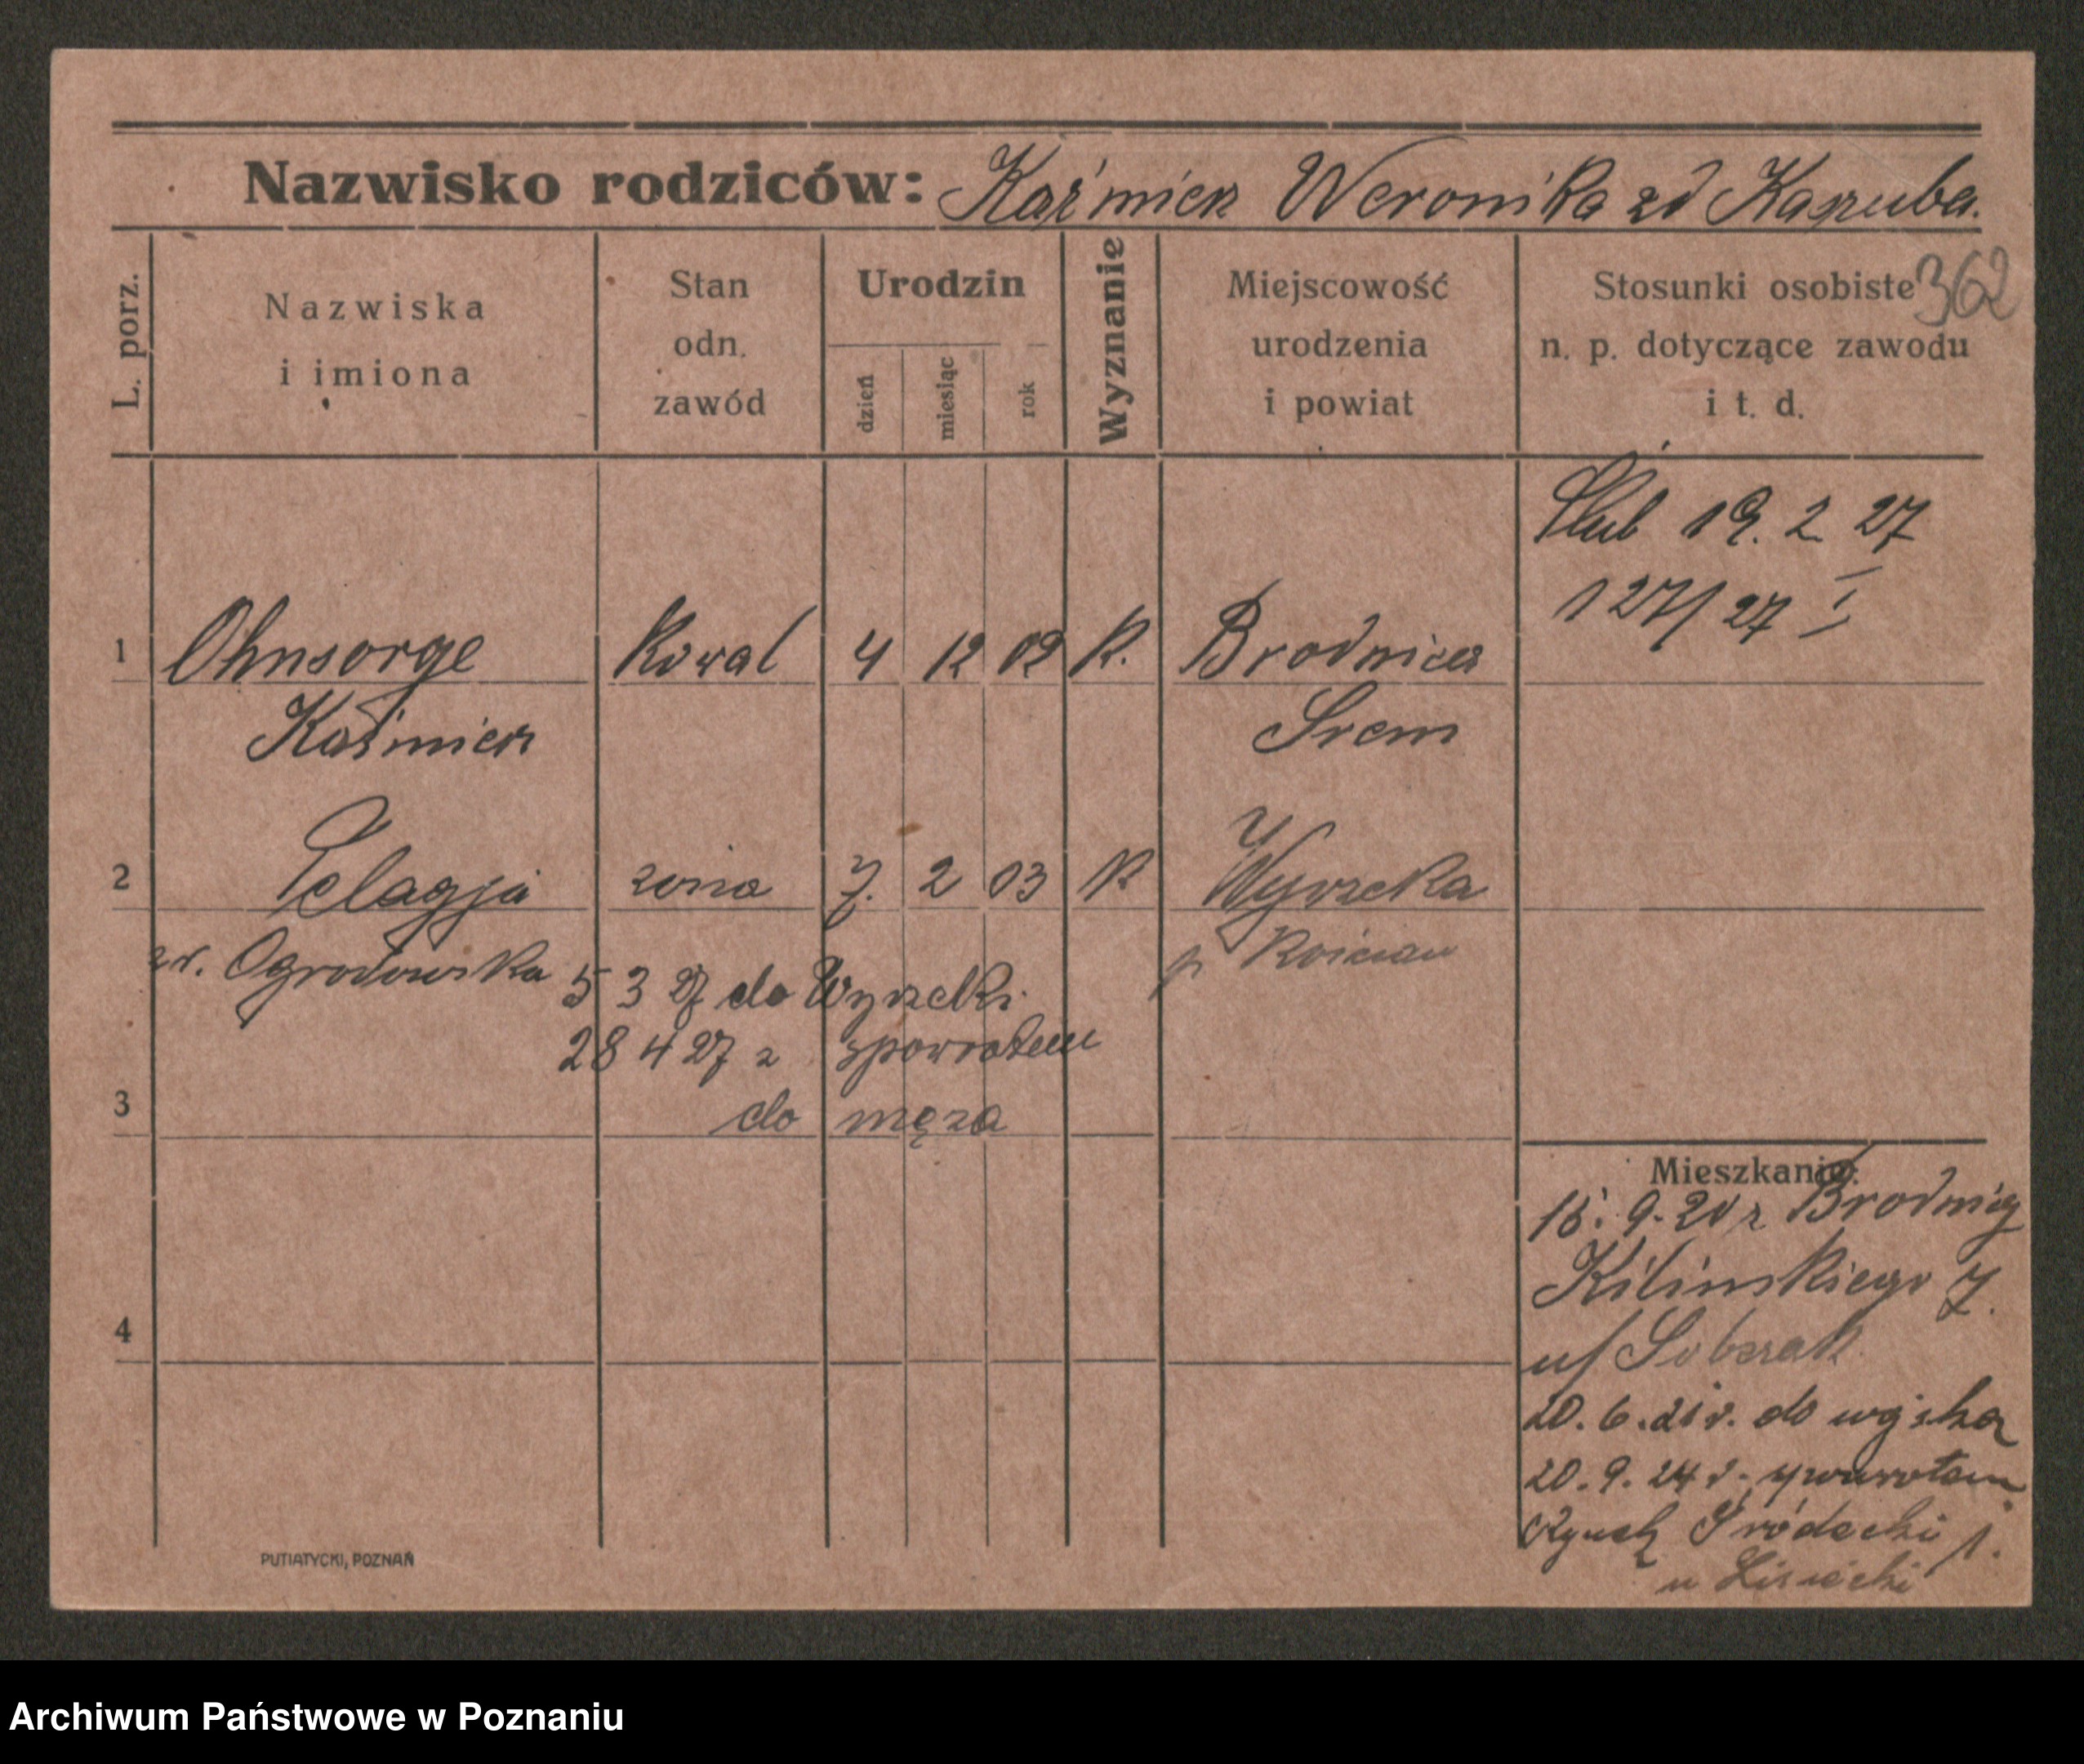 Nazwisko rodziców: Kaźmierz Weronika zd Kaszuba.
362
L. porz.
Nazwiska
i imiona
Stan
odn.
zawód
Urodzin
dzień
miesiąc
rok
Wyznanie
Miejscowość
urodzenia
i powiat
Stosunki osobiste
n. p. dotyczące zawodu
i t. d.
Ślub 19. 2 27
127/27 I
1 Ohnsorge Kowal 4 12 02 K. Brodnica
Kaźmierz Srem
2 Pelagja zona 7. 2 03 K Wyrzeka
zd. Ogrodowska p Kościan
5 3 27 do Wyrzeki
28 4 27 z spowrotem
3 do męza
Mieszkanie:
15. 9. 20 z Brodnicy
Kilinskiego 7.
u/ Sobczak
4
20. 6. 21 r. do wojska
20. 9. 24 r. spowrotem
Rynek Śródecki 1.
u Lisiecki
PUTIATYCKI, POZNAŃ
Archiwum Państwowe w Poznaniu